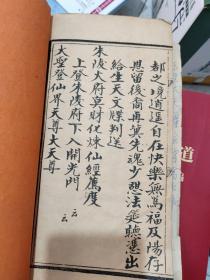 都之境道遥自在快樂無為福及陽存
恩留後裔再冀先魂少想法筵聽臺出
給生天文牒判送
朱陵大府莫財化煉仙經薦度
上登朱陵府下入開光門
云云
大聖登仙界天尊大天尊
道